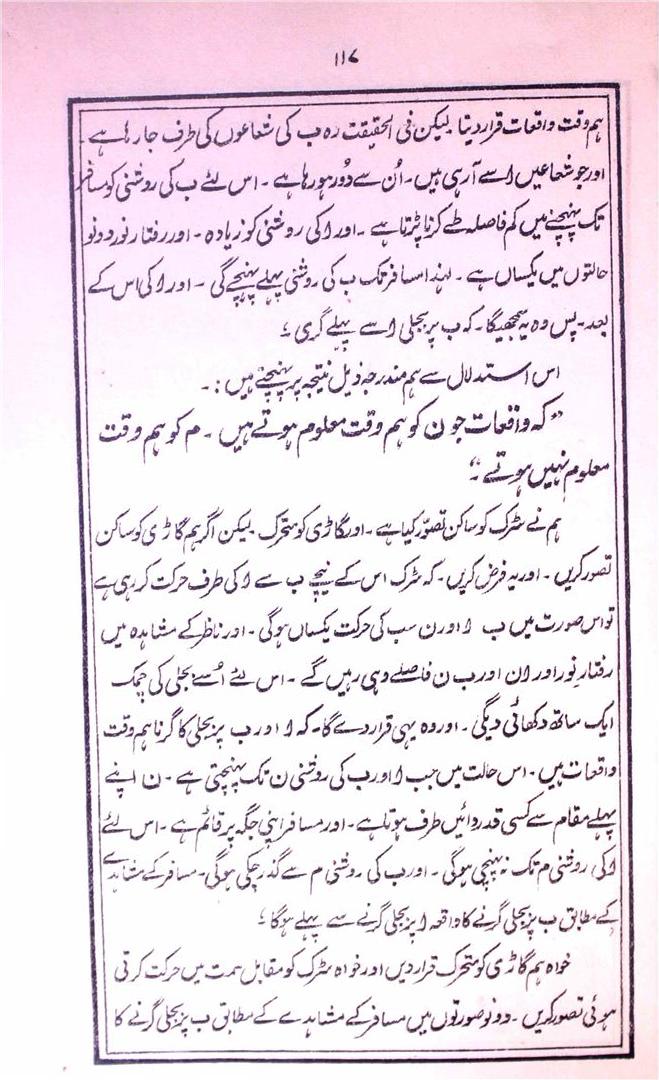 ۱۱۷
ہم وقت واقعات قرار دیتا۔ لیکن فی الحقیقت وہ ب کی شعاعوں کی طرف جا رہا ہے۔
اور جو شعاعیں ا سے آ رہی ہیں۔ اُن سے دُور ہو رہا ہے۔ اس لئے ب کی روشنی کو مسافر
تک پہنچنے میں کم فاصلہ طے کرنا پڑتا ہے۔ اور ا کی روشنی کو زیادہ۔ اور رفتار نور دونو
حالتوں میں یکساں ہے۔ لہذا مسافر تک ب کی روشنی پہلے پہنچے گی۔ اور ا کی اس کے
بعد۔ پس وہ یہ سمجھیگا۔ کہ ب پر بجلی ا سے پہلے گری ؛
اس استدلال سے ہم مندرجہ ذیل نتیجہ پر پہنچتے ہیں :۔
”کہ واقعات جو ن کو ہم وقت معلوم ہوتے ہیں۔ م کو ہم وقت
معلوم نہیں ہوتے ۔“
ہم نے سڑک کو ساکن تصوّر کیا ہے۔ اور گاڑی کو متحرک۔ لیکن اگر ہم گاڑی کو ساکن
تصور کریں۔ اور یہ فرض کریں۔ کہ سڑک اس کے نیچے ب سے ا کی طرف حرکت کر رہی ہے
تو اس صورت میں ب ا اور ن سب کی حرکت یکساں ہوگی۔ اور ناظر کے مشاہدہ میں
رفتارِ نور اور ان اور ب ن فاصلے وہی رہیں گے۔ اس لئے اُسے بجلی کی چمک
ایک ساتھ دکھائی دیگی۔ اور وہ یہی قرار دے گا۔ کہ ا اور ب پر بجلی کا گرنا ہم وقت
واقعات ہیں۔ اس حالت میں جب ا اور ب کی روشنی ن تک پہنچتی ہے۔ ن اپنے
پہلے مقام سے کسی قدر دائیں طرف ہوتا ہے۔ اور مسافر اپنی جگہ پر قائم ہے۔ اس لئے
ا کی روشنی م تک نہ پہنچی ہوگی۔ اور ب کی روشنی م سے گذر چکی ہوگی۔ مسافر کے مشاہدے
کے مطابق ب پر بجلی گرنے کا واقعہ ا پر بجلی گرنے سے پہلے ہوگا ؛
خواہ ہم گاڑی کو متحرک قرار دیں اور خواہ سڑک کو مقابل سمت میں حرکت کرتی
ہوئی تصور کریں۔ دونو صورتوں میں مسافر کے مشاہدے کے مطابق ب پر بجلی گرنے کا